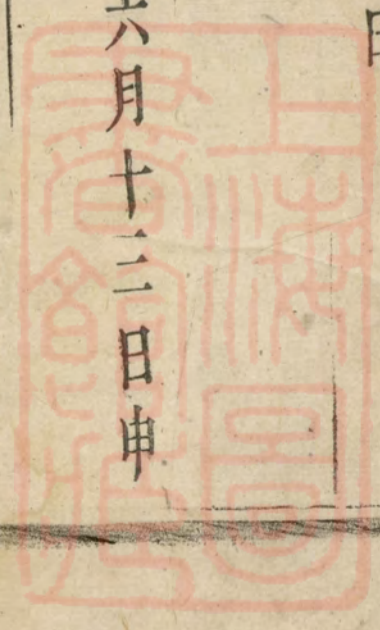 六月十三日申
上海圖
書館藏